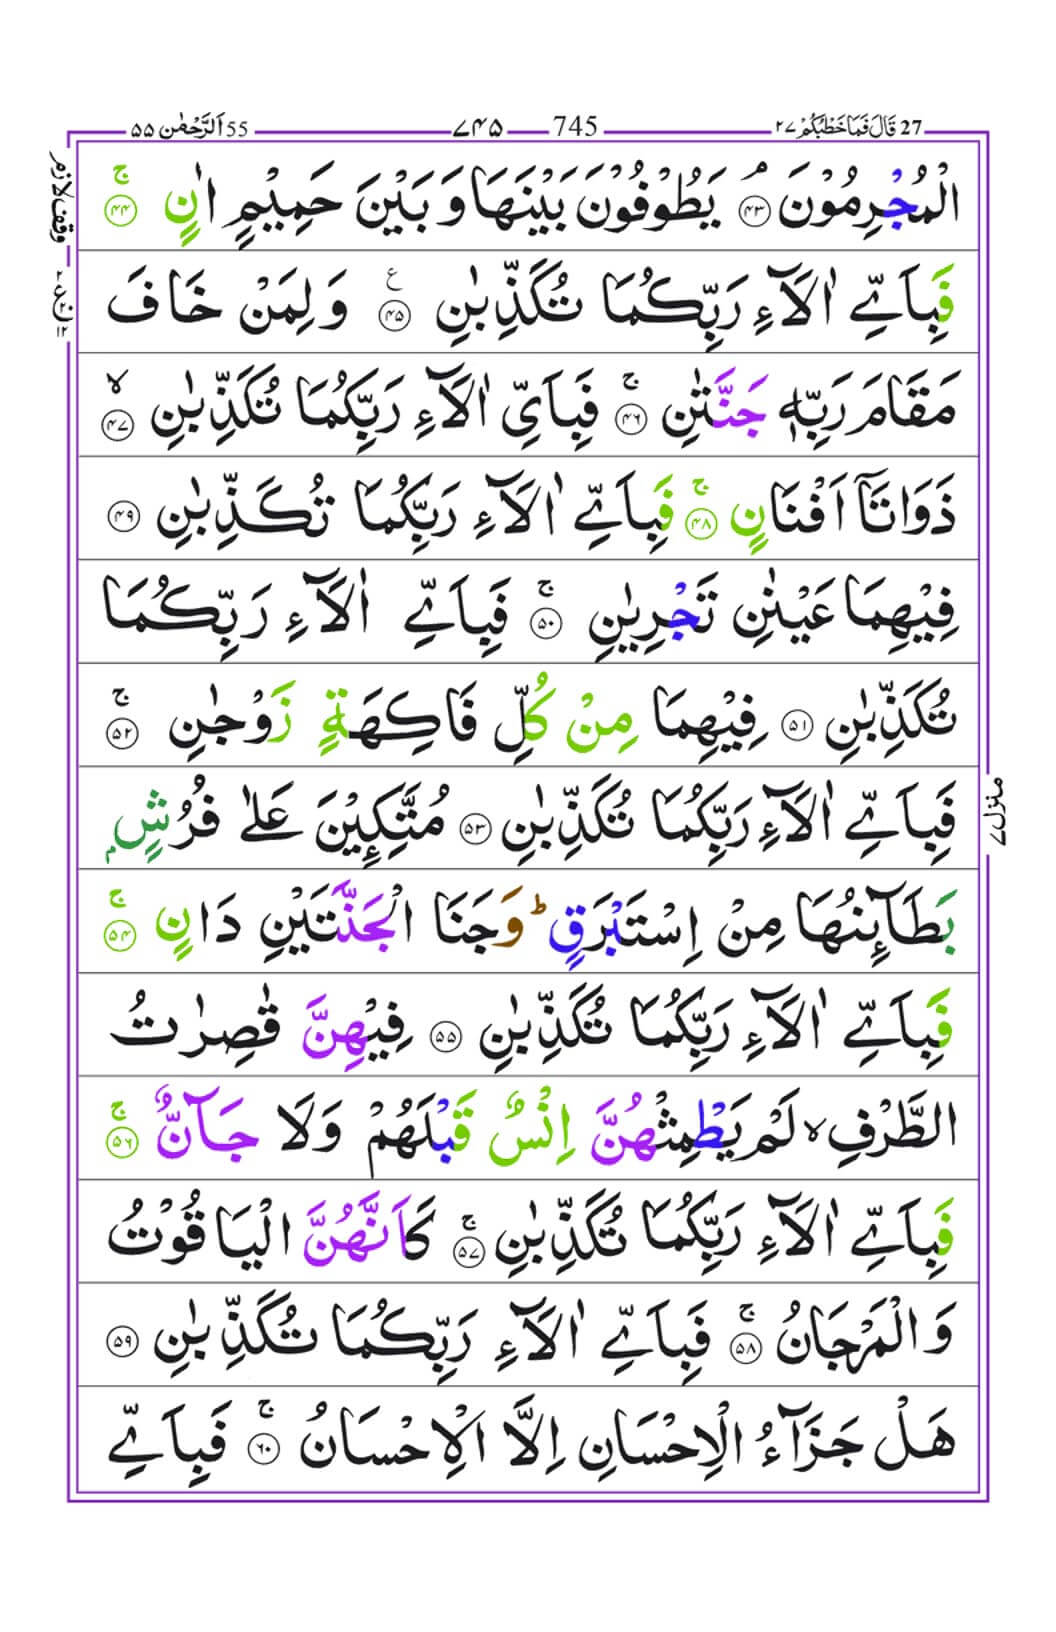 27 قَالَ فَمَا خَطْبُكُمْ ۲۷ 745 ۷۴۵ 55 اَلرَّحْمٰن ۵۵
الْمُجْرِمُوْنَ ۘ ﴿۴۳﴾ يَطُوْفُوْنَ بَيْنَهَا وَ بَيْنَ حَمِيْمٍ اٰنٍ ۚ ﴿۴۴﴾
وقف لازم
فَبِاَيِّ اٰلَآءِ رَبِّكُمَا تُكَذِّبٰنِ ﴿۴۵﴾ ع وَ لِمَنْ خَافَ
مَقَامَ رَبِّهٖ جَنَّتٰنِ ۚ ﴿۴۶﴾ فَبِاَيِّ اٰلَآءِ رَبِّكُمَا تُكَذِّبٰنِ ۙ ﴿۴۷﴾
ذَوَاتَاۤ اَفْنَانٍ ۚ ﴿۴۸﴾ فَبِاَيِّ اٰلَآءِ رَبِّكُمَا تُكَذِّبٰنِ ﴿۴۹﴾
فِيْهِمَا عَيْنٰنِ تَجْرِيٰنِ ۚ ﴿۵۰﴾ فَبِاَيِّ اٰلَآءِ رَبِّكُمَا
تُكَذِّبٰنِ ﴿۵۱﴾ فِيْهِمَا مِنْ كُلِّ فَاكِهَةٍ زَوْجٰنِ ۚ ﴿۵۲﴾
فَبِاَيِّ اٰلَآءِ رَبِّكُمَا تُكَذِّبٰنِ ﴿۵۳﴾ مُتَّكِـِٕيْنَ عَلٰى فُرُشٍۭ
منزل ۷
بَطَآئِنُهَا مِنْ اِسْتَبْرَقٍ ؕ وَجَنَا الْجَنَّتَيْنِ دَانٍ ۚ ﴿۵۴﴾
فَبِاَيِّ اٰلَآءِ رَبِّكُمَا تُكَذِّبٰنِ ﴿۵۵﴾ فِيْهِنَّ قٰصِرٰتُ
الطَّرْفِ ۙ لَمْ يَطْمِثْهُنَّ اِنْسٌ قَبْلَهُمْ وَلَا جَآنٌّ ۚ ﴿۵۶﴾
فَبِاَيِّ اٰلَآءِ رَبِّكُمَا تُكَذِّبٰنِ ۚ ﴿۵۷﴾ كَاَنَّهُنَّ الْيَاقُوْتُ
وَ الْمَرْجَانُ ۚ ﴿۵۸﴾ فَبِاَيِّ اٰلَآءِ رَبِّكُمَا تُكَذِّبٰنِ ﴿۵۹﴾
هَلْ جَزَآءُ الْاِحْسَانِ اِلَّا الْاِحْسَانُ ۚ ﴿۶۰﴾ فَبِاَيِّ